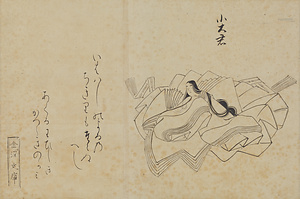 小大君
いはゝしのよるの
ちきりもたえぬ
へし
あくるわひしき
かつらきのかみ